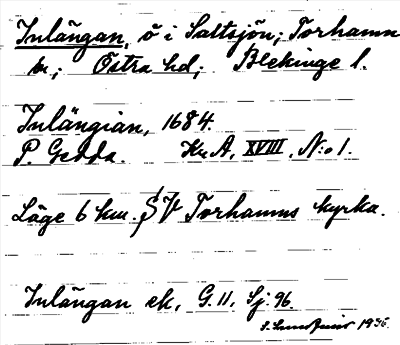 Inlängan, ö i Saltsjön; Torhamn
sn; Östra hd; Blekinge l.
Inlängian, 1684.
P. Gedda. Kr.A. XVIII, N:o 1.
Läge 6 km. SV Torhamns kyrka.
Inlängan ek. G.11. Sj. 96.
1936.